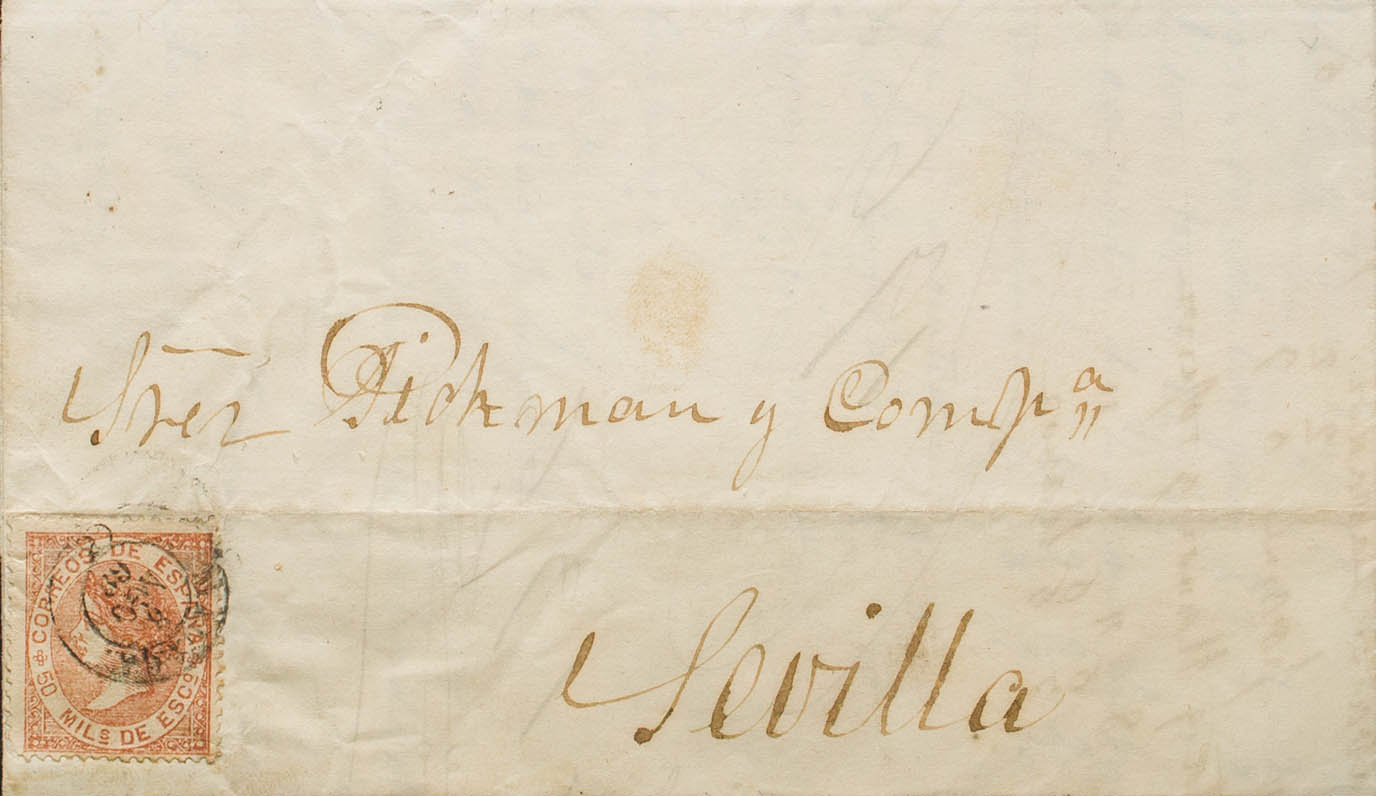 Sres Pickman y Compª
Sevilla
CORREOS DE ESPAÑA
50 MILs DE ESCo